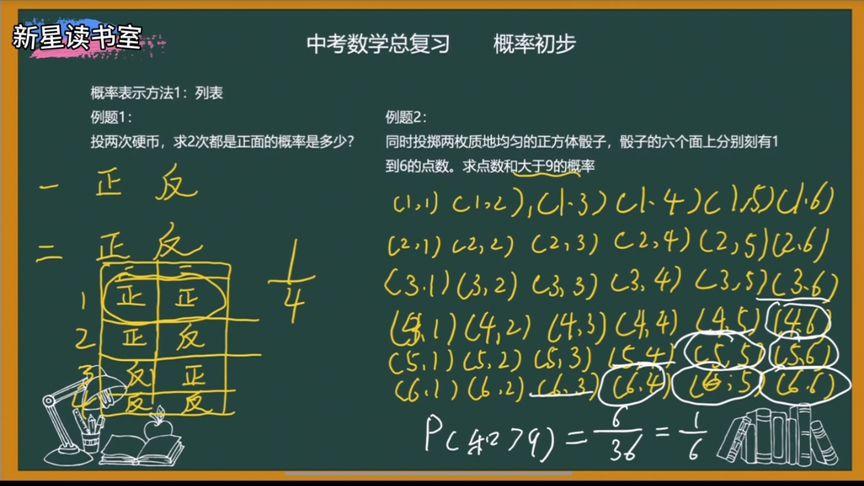 新星读书室
中考数学总复习 概率初步
概率表示方法1：列表
例题1：
投两次硬币，求2次都是正面的概率是多少?
一 正 反
二 正 反
一 二
1 正 正
2 正 反
3 反 正
4 反 反
1/4
例题2：
同时投掷两枚质地均匀的正方体骰子，骰子的六个面上分别刻有1
到6的点数。求点数和大于9的概率
(1,1) (1,2), (1.3) (1.4) (1,5) (1.6)
(2,1) (2,2) (2,3) (2,4) (2,5) (2.6)
(3.1) (3,2) (3,3) (3,4) (3,5) (3.6)
(4,1) (4,2) (4,3) (4,4) (4,5) (4,6)
(5,1) (5,2) (5,3) (5,4) (5,5) (5,6)
(6,1) (6,2) (6,3) (6,4) (6,5) (6,6)
P(和>9) = 6/36 = 1/6